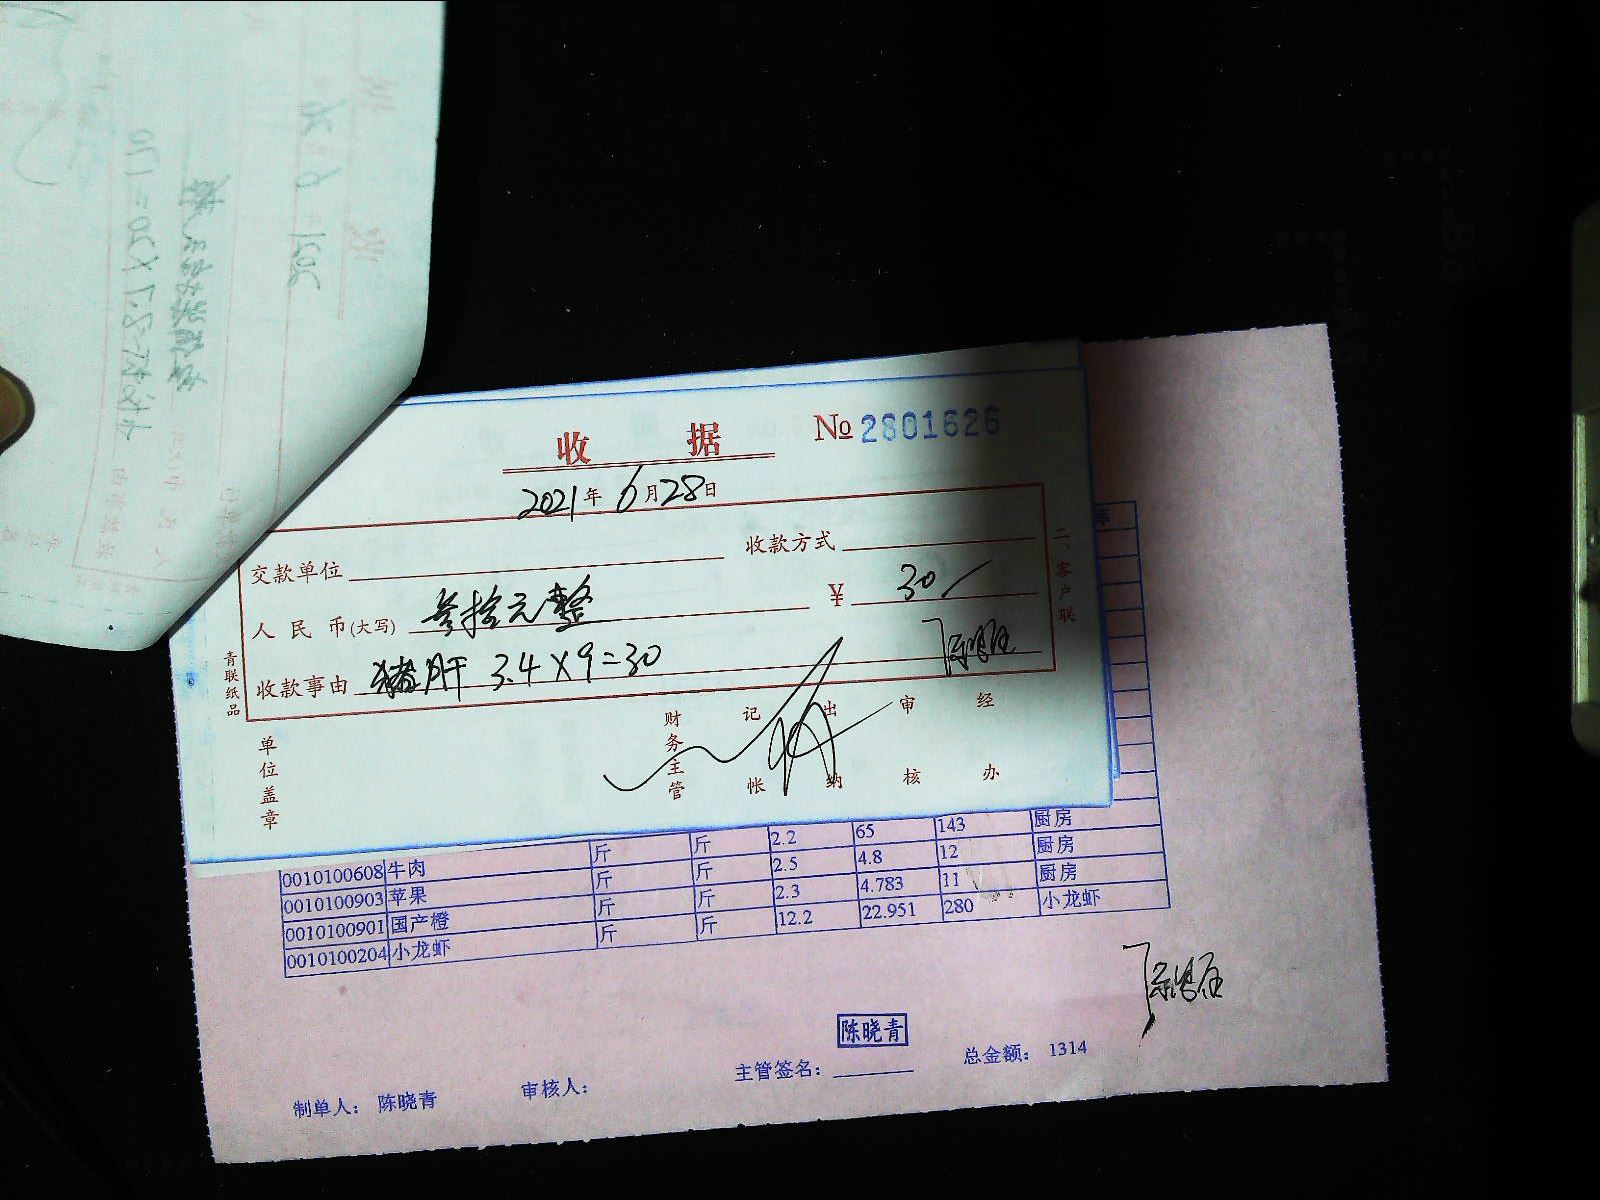 收 据 No 2801626
2021年6月28日
交款单位 收款方式
人民币(大写) 叁拾元整 ¥ 30
收款事由 猪肝 3.4×9=30
二、客户联
青联纸品
单位盖章 财务主管 记帐 出纳 审核 经办
车
斤 斤 2.2 65 143 厨房
0010100608 牛肉 斤 斤 2.5 4.8 12 厨房
0010100903 苹果 斤 斤 2.3 4.783 11 厨房
0010100901 国产橙 斤 斤 12.2 22.951 280 小龙虾
0010100204 小龙虾
陈晓青
制单人： 陈晓青 审核人： 主管签名： 总金额： 1314